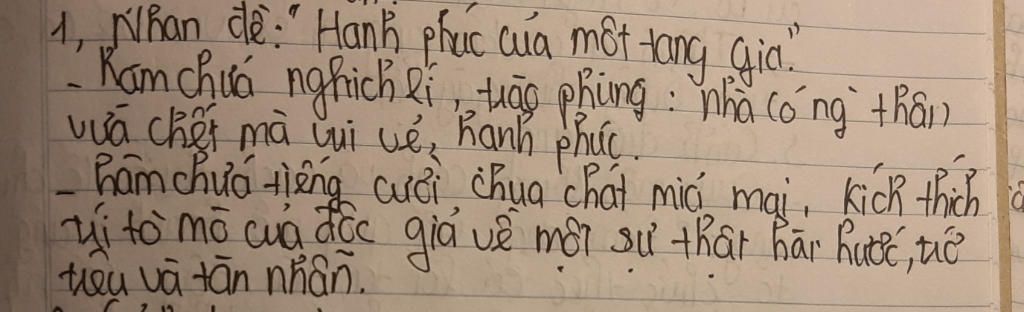 1, Nhan đề: "Hạnh phúc của một tang gia".
- Hàm chứa nghịch lí, trào phúng: nhà có ng` thân
vừa chết mà vui vẻ, hạnh phúc.
- hàm chứa tiếng cười chua chát mỉa mai, kích thích
trí tò mò của độc giả về một sự thật hài hước, trớ
trêu và tàn nhẫn.